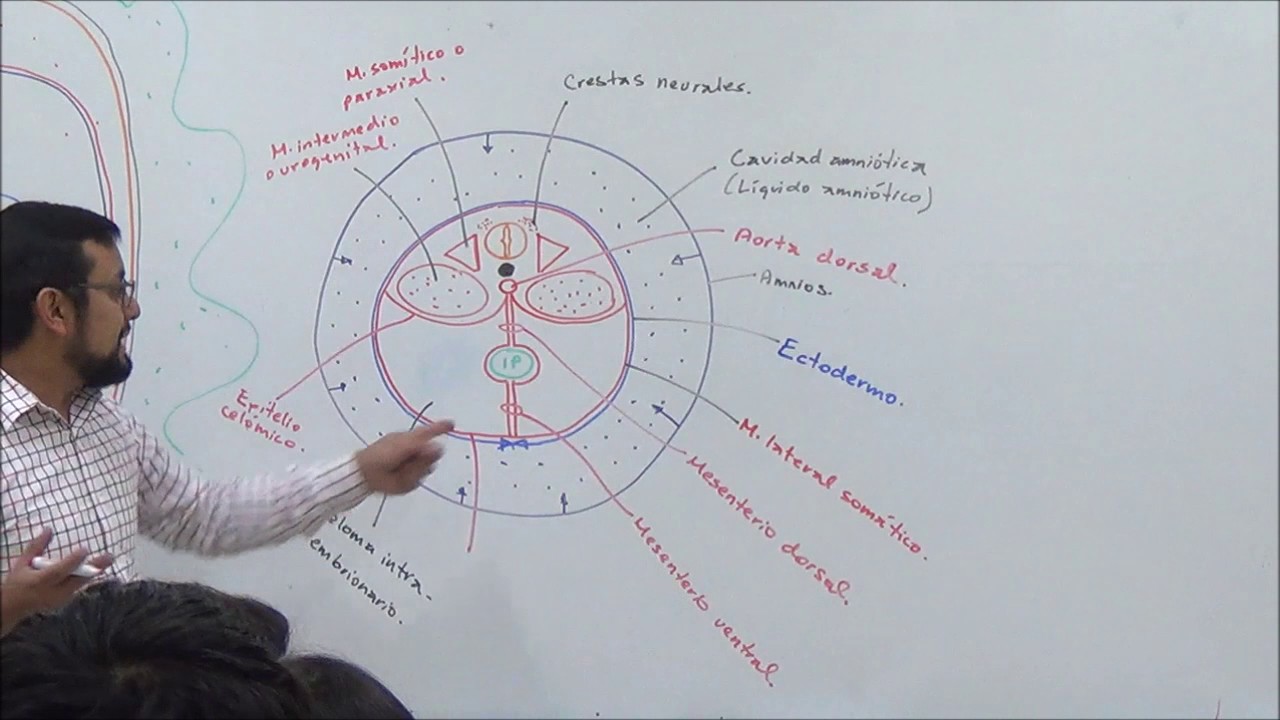 M. somítico o
paraxial.
Crestas neurales.
M. intermedio
o urogenital.
Cavidad amniótica
(Líquido amniótico)
Aorta dorsal.
Amnios.
Ectodermo.
IP
Epitelio
celómico.
M. lateral somático.
Mesenterio dorsal.
Mesenterio ventral.
eloma intra-
embrionario.